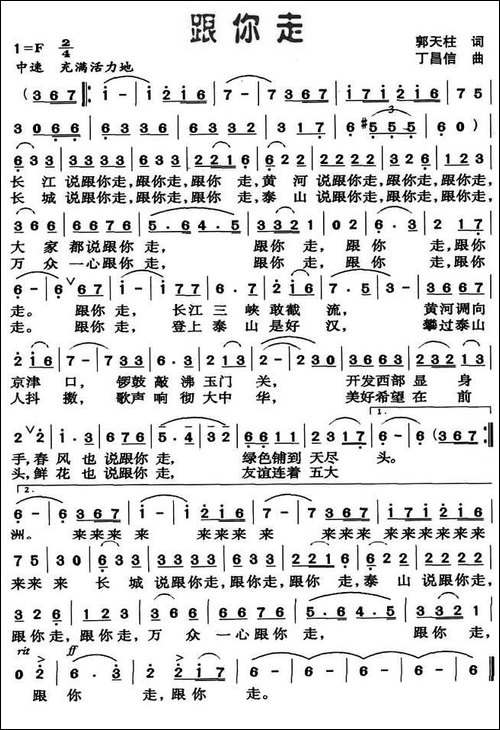 跟你走
1=F 2/4
郭天柱 词
中速 充满活力地
丁昌信 曲
(3 6 7 ‖: i - | i 7 i 2 i 6 | 7 - | 7 3 3 6 7 | i 7 i 2 i 6 | 7 5
3 0 6 6 | 6 3 3 6 | 6 3 3 2 | 3 3 1 7 | 6 #5 5 5 | 6 0 )
6 3 3 | 3 3 3 3 | 3 3 3 3 | 2 2 1 6 | 6 2 2 | 2 2 2 2 | 2 2 2 2 | 1 2 3
长 江 说跟你走,跟你走,跟你 走,黄 河 说跟你走,跟你走,跟你走,
长 城 说跟你走,跟你走,跟你 走,泰 山 说跟你走,跟你走,跟你走,
3 6 6 | 7 6 7 6 | 5. 6 4. 5 | 3 3 2 1 | 0 2 | 6. 3 | 2 1 7
大 家 都说跟你 走, 跟你 走, 跟 你 走,跟你
万 众 一心跟你 走, 跟你 走, 跟 你 走,跟你
6 - | 6 V 6 7 | i - | i 7 7 | 6. 7 6 | 5 6 3 | 3 - | 3 6 1 7
走。 跟你 走, 长江 三 峡 敢截 流, 黄河调向
走。 跟你 走, 登上 泰 山 是好 汉, 攀过泰山
2 i 6 | 7 - | 7 3 3 | 6. 3 | 2 1 2 | 3 - | 3 6 6 3 | 2 3 2 1 3
京津 口, 锣鼓 敲 沸 玉门 关, 开发西部 显 身
人抖 擞, 歌声 响 彻 大中 华, 美好希望 在 前
1.
2 V 2 | i. 3 | 6 7 6 | 5. 4 | 3 2 | 6 1 1 1 | 2 3 1 7 | 6 - | 6 (3 6 7 :‖
手,春 风 也 说跟你 走, 绿色铺到 天尽 头。
头,鲜 花 也 说跟你 走, 友谊连着 五大
2.
6 - | 6 3 6 7 | i - | i 7 i 2 i 6 | 7 - | 7 3 6 7 | i - | i 7 i 2 i 6
洲。 来来来 来 来来 来来 来 来来来 来 来来 来来
7 5 | 3 0 | 6 3 3 | 3 3 3 3 | 3 3 3 3 | 2 2 1 6 | 6 2 2 | 2 2 2 2
来来 来 长 城 说跟你走,跟你走,跟你 走,泰 山 说跟你走,
3 2 6 | 1 2 3 | 3 6 6 | 7 6 7 6 | 5 - | 5. 6 4. 5 | 3 - | 3 3 2 1
跟你走,跟你走,万 众 一心跟你 走, 跟你 走,
rit ff
0 2 | 6. 3 | 2 2 1 7 | 6 - | 6 - | 6 - | 6 - | 6 - :‖
跟 你 走,跟你 走。